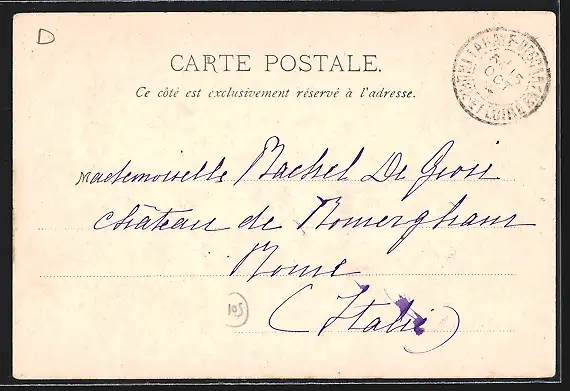 D
CARTE POSTALE.
Ce côté est exclusivement réservé à l'adresse.
Mademoiselle Rachel De Grosi
château de Romergham
Rome
(Italie)
105
15
OCT
ET LOIRE